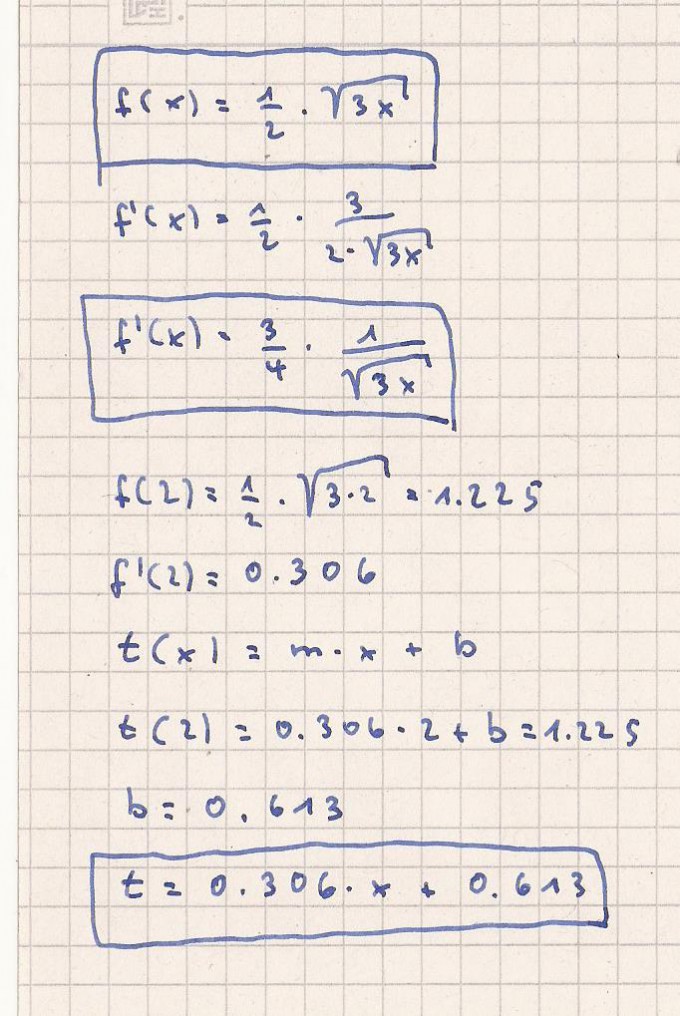 f(x) = 1/2 · √(3x)
f'(x) = 1/2 · 3/(2·√(3x))
f'(x) = 3/4 · 1/√(3x)
f(2) = 1/2 · √(3·2) = 1.225
f'(2) = 0.306
t(x) = m·x + b
t(2) = 0.306·2 + b = 1.225
b = 0.613
t = 0.306·x + 0.613